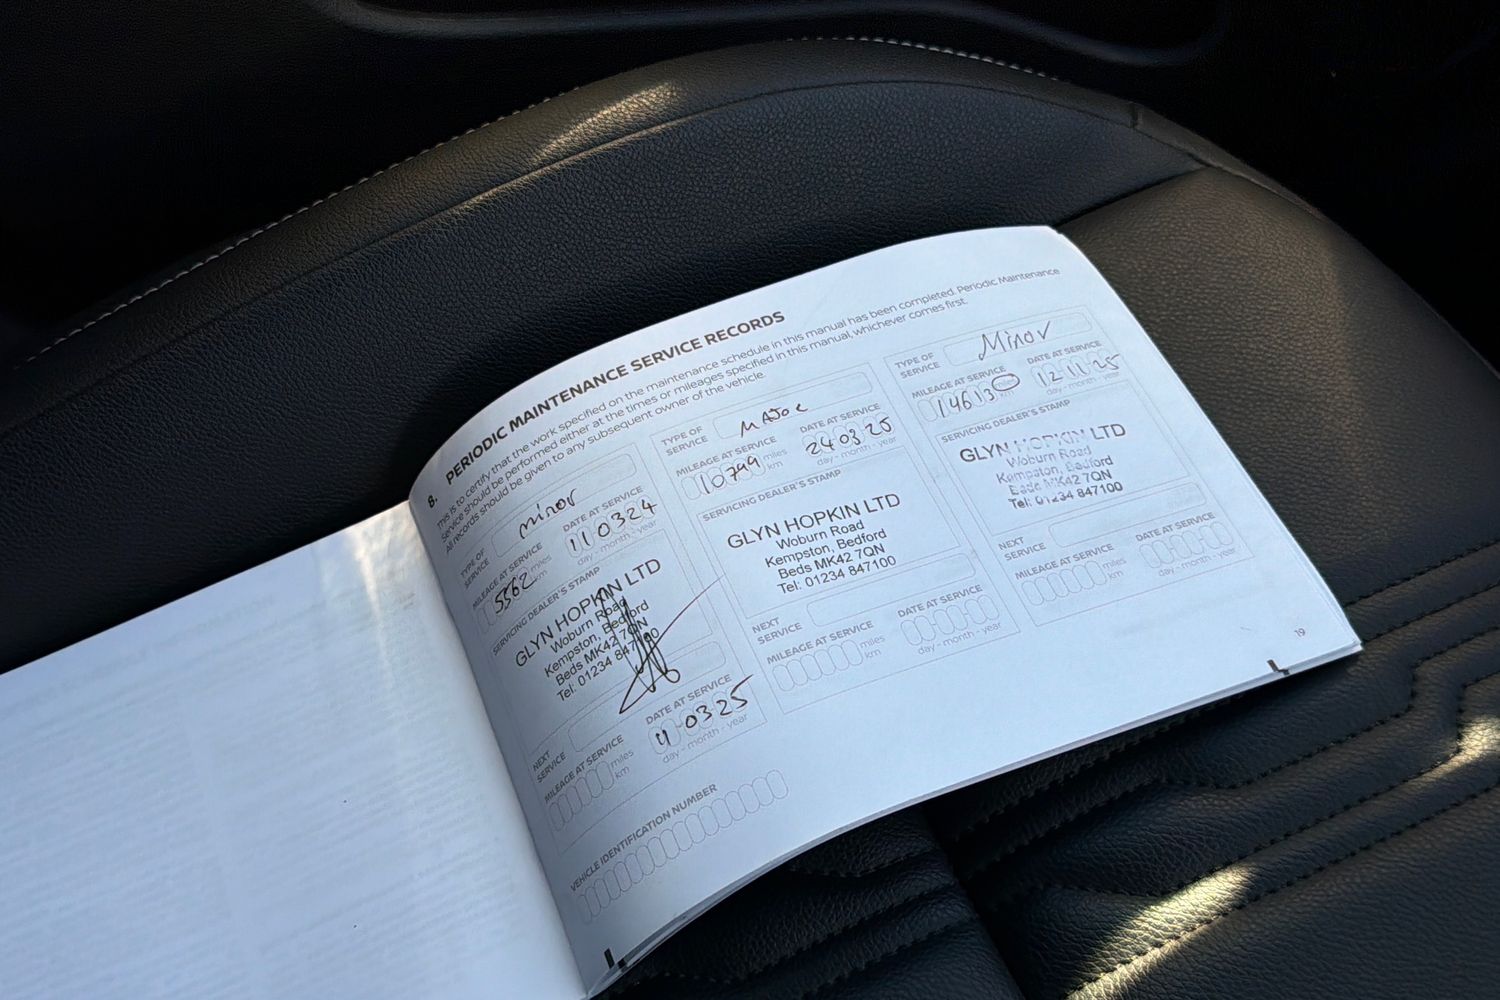 8. PERIODIC MAINTENANCE SERVICE RECORDS
This is to certify that the work specified on the maintenance schedule in this manual has been completed. Periodic Maintenance
Service should be performed either at the times or mileages specified in this manual, whichever comes first.
All records should be given to any subsequent owner of the vehicle.
TYPE OF SERVICE
minor
MILEAGE AT SERVICE
5562
miles
km
DATE AT SERVICE
110324
day - month - year
SERVICING DEALER'S STAMP
GLYN HOPKIN LTD
Woburn Road
Kempston, Bedford
Beds MK42 7QN
Tel: 01234 847100
NEXT SERVICE
MILEAGE AT SERVICE
miles
km
DATE AT SERVICE
11 0325
day - month - year
VEHICLE IDENTIFICATION NUMBER
TYPE OF SERVICE
MAJOR
MILEAGE AT SERVICE
10799
miles
km
DATE AT SERVICE
240325
day - month - year
SERVICING DEALER'S STAMP
GLYN HOPKIN LTD
Woburn Road
Kempston, Bedford
Beds MK42 7QN
Tel: 01234 847100
NEXT SERVICE
MILEAGE AT SERVICE
miles
km
DATE AT SERVICE
day - month - year
TYPE OF SERVICE
Minor
MILEAGE AT SERVICE
14613
miles
km
DATE AT SERVICE
12 11 25
day - month - year
SERVICING DEALER'S STAMP
GLYN HOPKIN LTD
Woburn Road
Kempston, Bedford
Beds MK42 7QN
Tel: 01234 847100
NEXT SERVICE
MILEAGE AT SERVICE
miles
km
DATE AT SERVICE
day - month - year
19